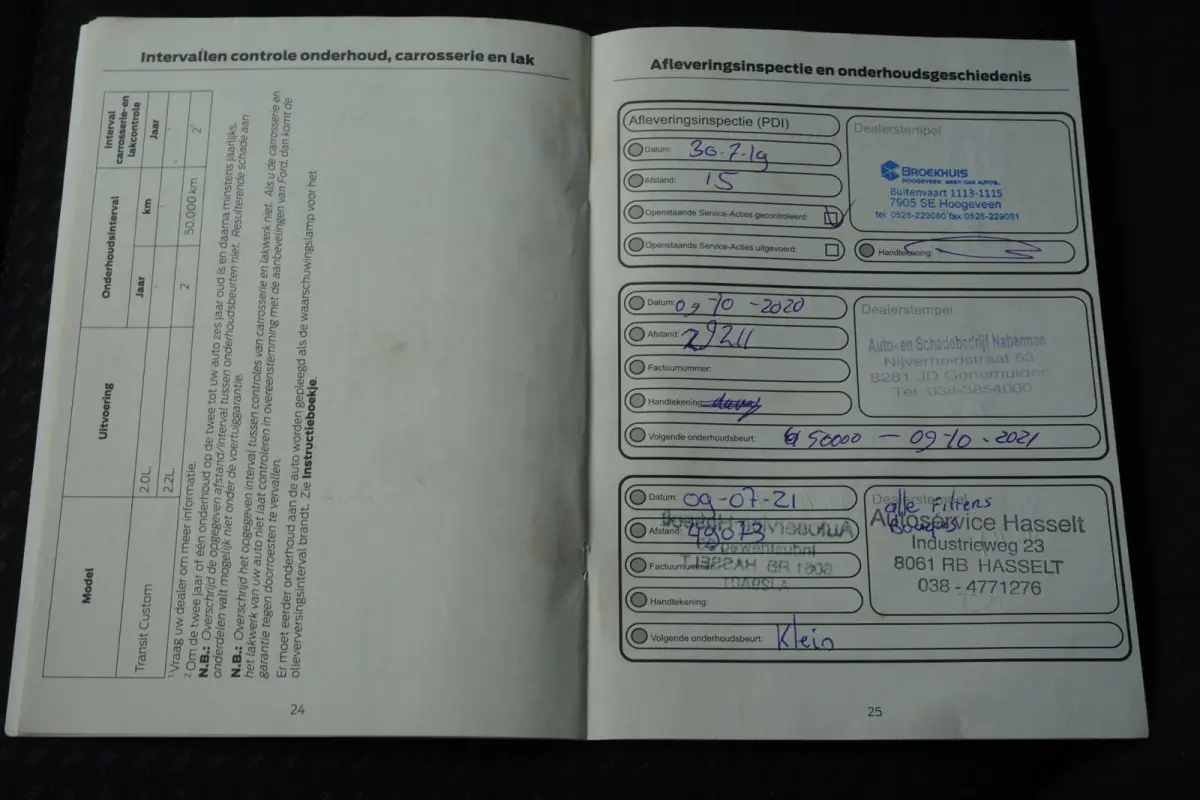 Intervallen controle onderhoud, carrosserie en lak
Model
Uitvoering
Onderhoudsinterval
Interval carrosserie-en lakcontrole
Jaar
km
Jaar
Transit Custom
2.0L
2.2L
2
50.000 km
2
¹ Vraag uw dealer om meer informatie.
² Om de twee jaar of één onderhoud op de twee tot uw auto zes jaar oud is en daarna minstens jaarlijks.
N.B.: Overschrijd de opgegeven afstand/interval tussen onderhoudsbeurten niet. Resulterende schade aan
onderdelen valt mogelijk niet onder de voertuiggarantie.
N.B.: Overschrijd het opgegeven interval tussen controles van carrosserie en lakwerk niet. Als u de carrosserie en
het lakwerk van uw auto niet laat controleren in overeenstemming met de aanbevelingen van Ford, dan komt de
garantie tegen doorroesten te vervallen.
Er moet eerder onderhoud aan de auto worden gepleegd als de waarschuwingslamp voor het
olieverversingsinterval brandt. Zie Instructieboekje.
24
Afleveringsinspectie en onderhoudsgeschiedenis
Afleveringsinspectie (PDI)
Datum: 30-7-19
Afstand: 15
Openstaande Service-Acties gecontroleerd:
Openstaande Service-Acties uitgevoerd:
Dealerstempel
BROEKHUIS
HOOGEVEEN MEER DAN AUTO'S..
Buitenvaart 1113-1115
7905 SE Hoogeveen
tel: 0528-229080 fax:0528-229081
Handtekening:
Datum: 09-10-2020
Afstand: 29211
Factuurnummer:
Handtekening:
Dealerstempel
Auto- en Schadebedrijf Naberman
Nijverheidstraat 53
8281 JD Genemuiden
Tel. 038-3854000
Volgende onderhoudsbeurt: 50000 - 09-10-2021
Datum: 09-07-21
Afstand: 49073
Factuurnummer:
Handtekening:
Dealerstempel
alle Filters
Bougies
Autoservice Hasselt
Industrieweg 23
8061 RB HASSELT
038 - 4771276
Volgende onderhoudsbeurt: Klein
25